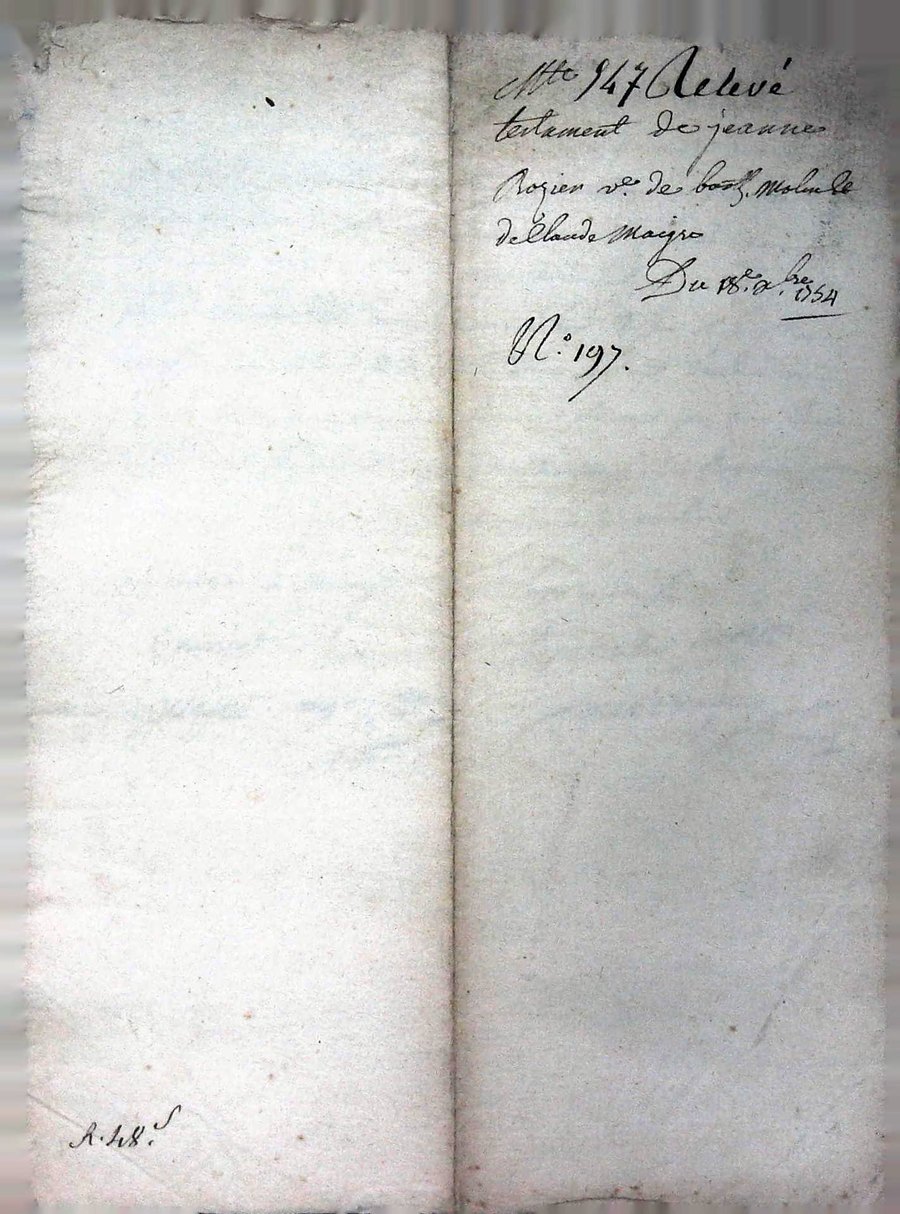 947 Relevé
testament de jeanne
Rozier v.e de Molin &
de Claude Maigre
Du 18.e bre 1754
N.o 197.
R. 48.s